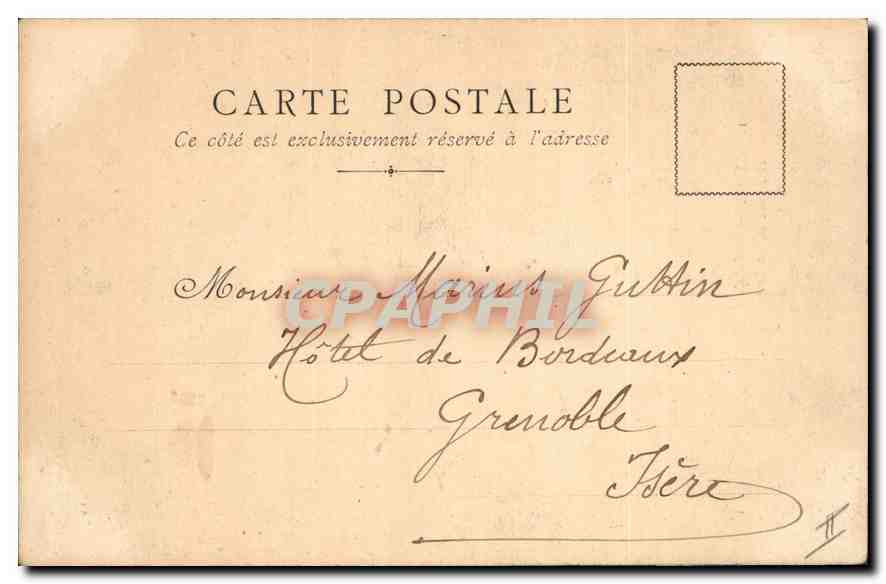 CARTE POSTALE
Ce côté est exclusivement réservé à l'adresse
Monsieur Marius Guttin
CPAPHIL
Hôtel de Bordeaux
Grenoble
Isère
II